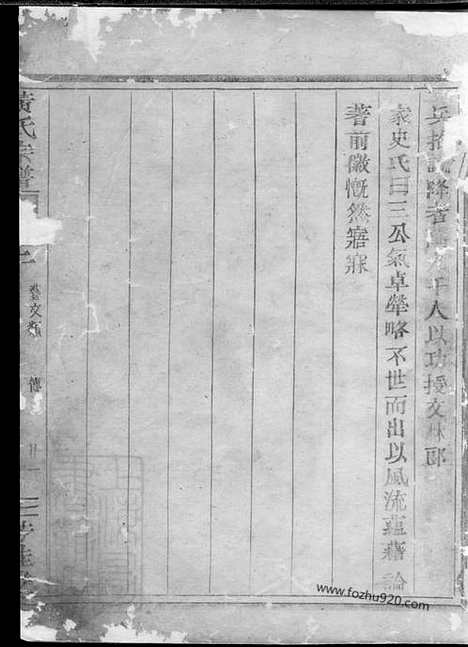 兵招降者千人以功授文林郎
家史氏曰三公氣卓犖略不世而出以風流蘊藉論
著前徽慨然寤寐
黃氏宗譜
藝文類
傳
www.fozhu920.com